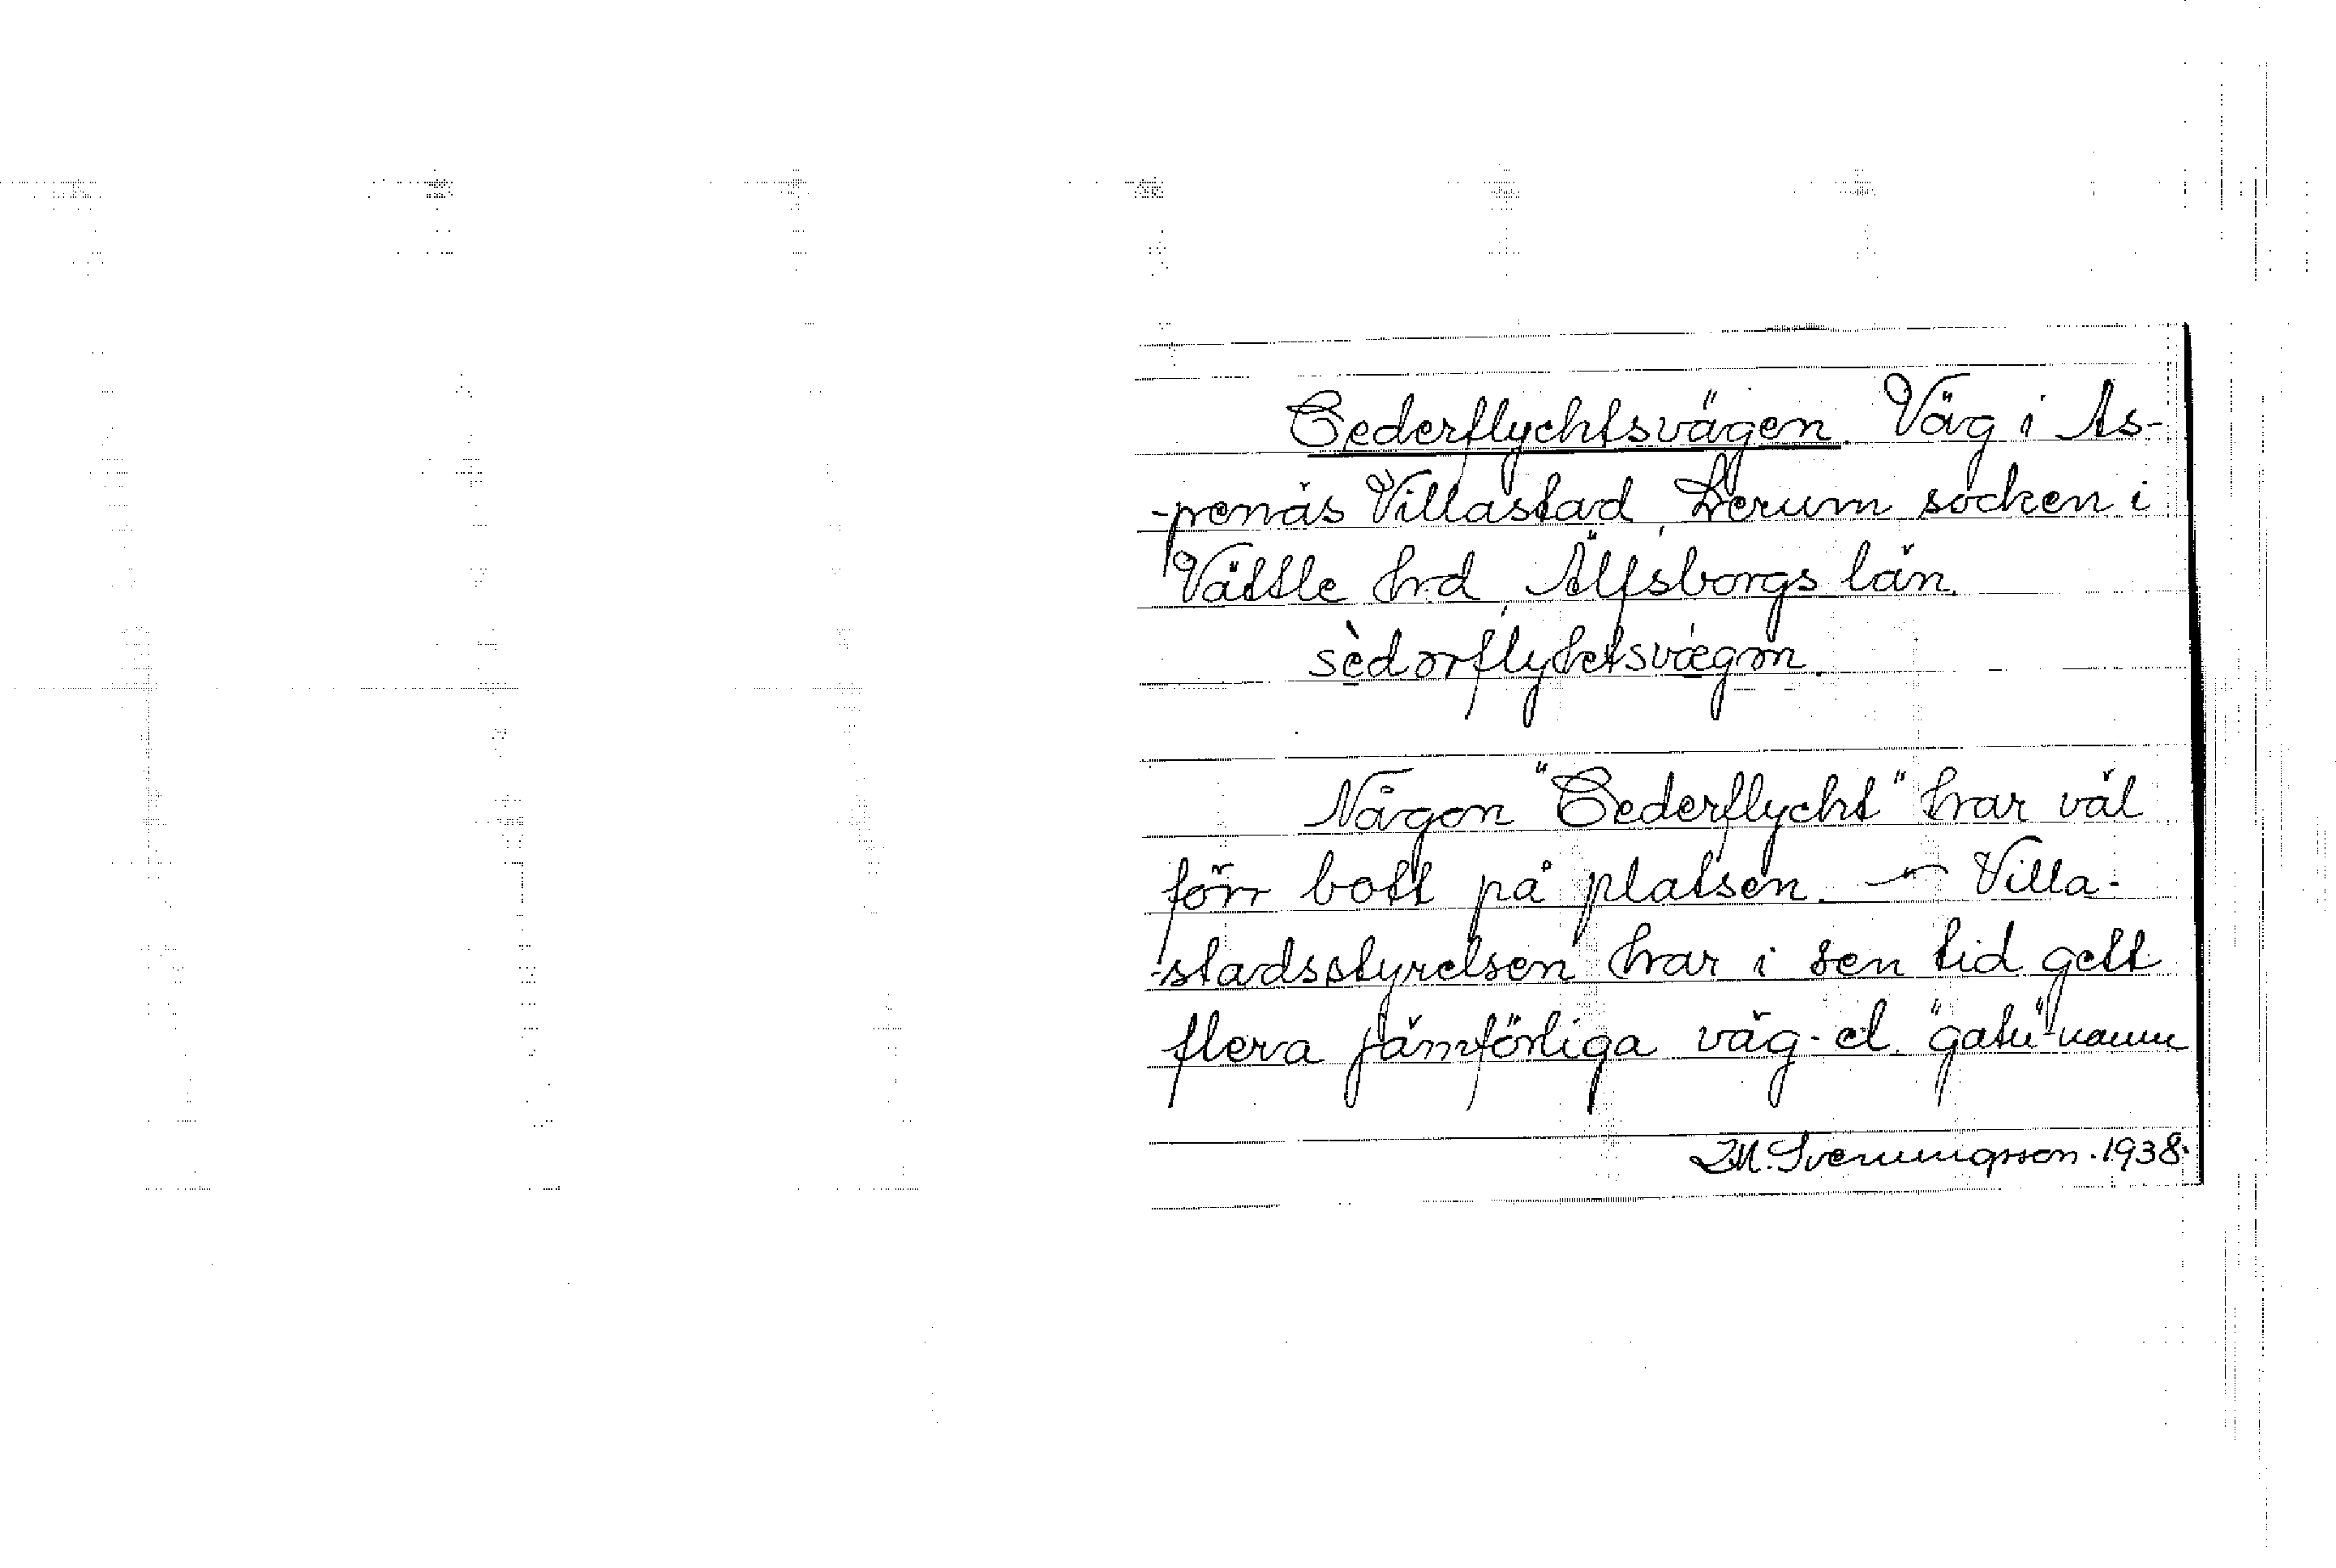 Cederflychtsvägen. Väg i As-
-penäs Villastad, Lerum socken i
Vättle hrd, Älfsborgs län.
sèdərflyhetsvægən.
Någon "Cederflycht" har väl
förr bott på platsen. — Villa-
-stadsstyrelsen har i sen tid gett
flera jämförliga väg- el. "gatu"-namn
I.M. Svenningsson. 1938.